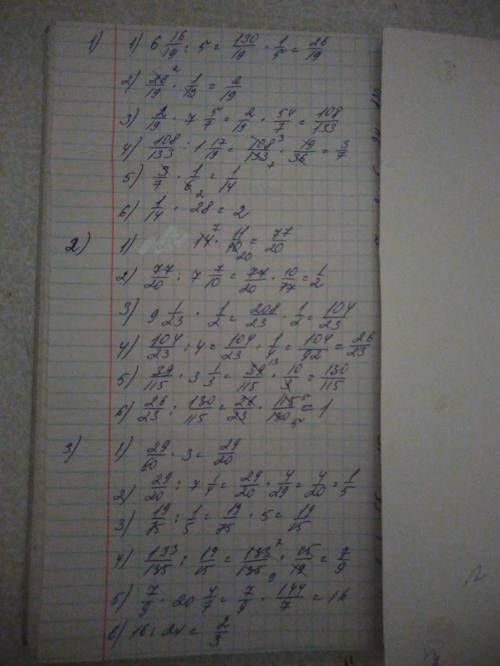 1) 1) 6 16/19 : 5 = 130/19 · 1/5 = 26/19
2) 26/19 · 1/13 = 2/19
3) 2/19 · 7 5/7 = 2/19 · 54/7 = 108/133
4) 108/133 : 1 17/19 = 108/133 · 19/36 = 3/7
5) 3/7 · 1/6 = 1/14
6) 1/14 · 28 = 2
2) 1) 14 · 11/20 = 77/20
2) 77/20 : 7 7/10 = 77/20 · 10/77 = 1/2
3) 9 1/23 · 1/2 = 208/23 · 1/2 = 104/23
4) 104/23 : 4 = 104/23 · 1/4 = 104/92 = 26/23
5) 39/115 · 3 1/3 = 39/115 · 10/3 = 130/115
6) 26/23 : 130/115 = 26/23 · 115/130 = 1
3) 1) 29/60 · 3 = 29/20
2) 29/20 : 7 1/4 = 29/20 · 4/29 = 4/20 = 1/5
3) 19/75 : 1/5 = 19/75 · 5 = 19/15
4) 133/135 : 19/15 = 133/135 · 15/19 = 7/9
5) 7/9 · 20 4/7 = 7/9 · 144/7 = 16
6) 16 : 24 = 2/3